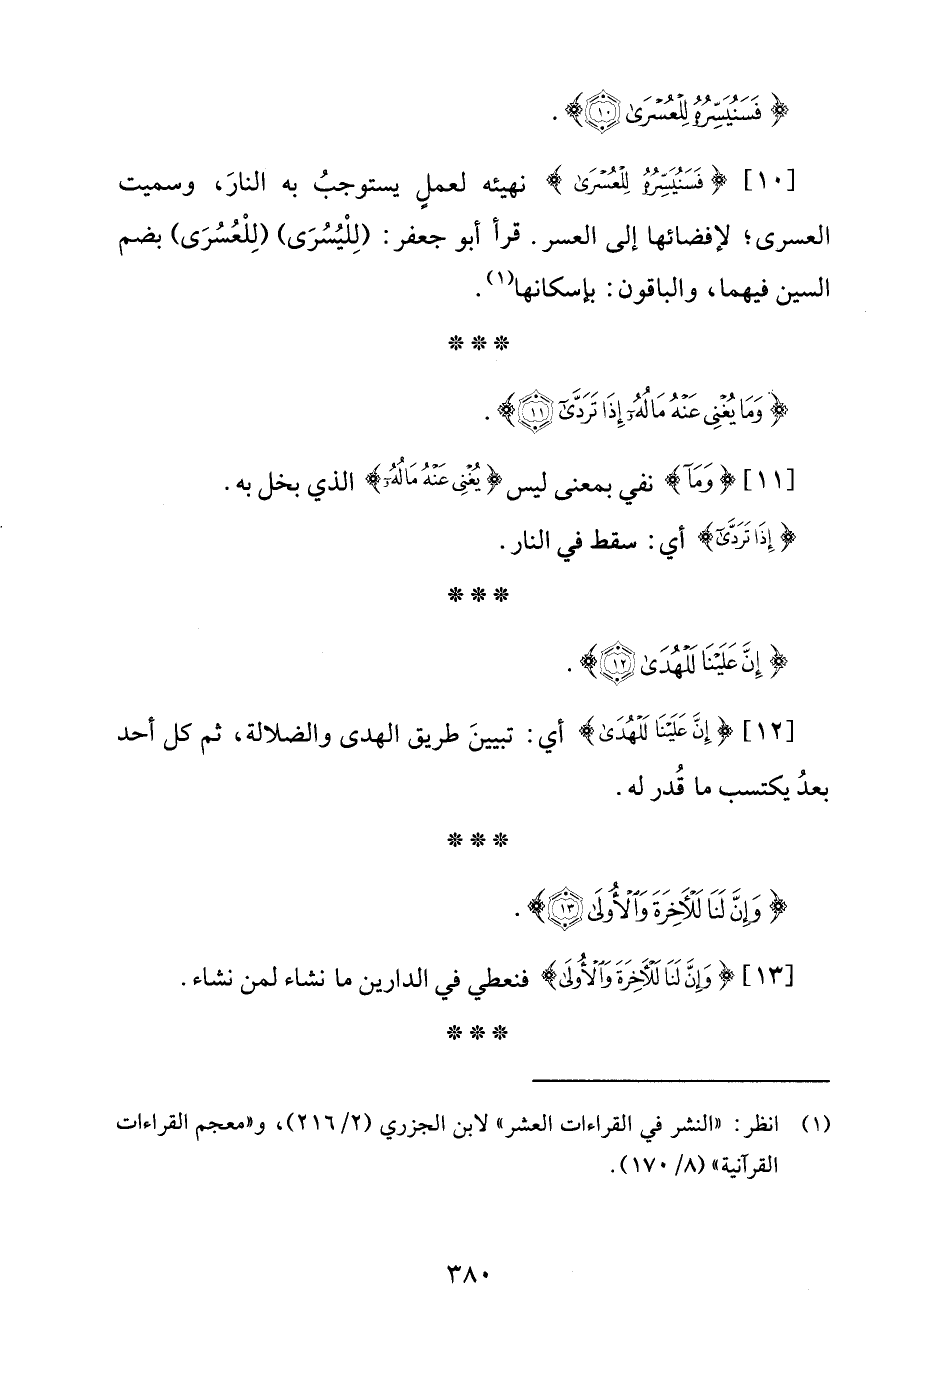 ﴿ فَسَنُيَسِّرُهُۥ لِلْعُسْرَىٰ ۝١٠ ﴾ .
[١٠] ﴿ فَسَنُيَسِّرُهُۥ لِلْعُسْرَىٰ ﴾ نهيئه لعملٍ يستوجبُ به النارَ، وسميت
العسرى؛ لإفضائها إلى العسر. قرأ أبو جعفر: (لِلْيُسُرَى) (لِلْعُسُرَى) بضم
السين فيهما، والباقون: بإسكانها(١).
* * *
﴿ وَمَا يُغْنِى عَنْهُ مَالُهُۥٓ إِذَا تَرَدَّىٰٓ ۝١١ ﴾ .
[١١] ﴿ وَمَآ ﴾ نفي بمعنى ليس ﴿ يُغْنِى عَنْهُ مَالُهُۥٓ ﴾ الذي بخل به .
﴿ إِذَا تَرَدَّىٰٓ ﴾ أي: سقط في النار .
* * *
﴿ إِنَّ عَلَيْنَا لَلْهُدَىٰ ۝١٢ ﴾ .
[١٢] ﴿ إِنَّ عَلَيْنَا لَلْهُدَىٰ ﴾ أي: تبيينَ طريق الهدى والضلالة، ثم كل أحد
بعدُ يكتسب ما قُدر له .
* * *
﴿ وَإِنَّ لَنَا لَلْأَخِرَةَ وَٱلْأُولَىٰ ۝١٣ ﴾ .
[١٣] ﴿ وَإِنَّ لَنَا لَلْأَخِرَةَ وَٱلْأُولَىٰ ﴾ فنعطي في الدارين ما نشاء لمن نشاء .
* * *
(١) انظر: «النشر في القراءات العشر» لابن الجزري (٢/ ٢١٦)، و«معجم القراءات
القرآنية» (٨/ ١٧٠).
٣٨٠